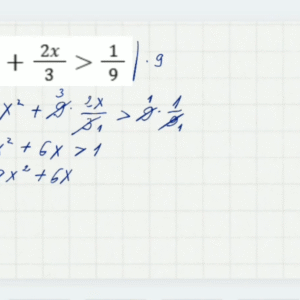 + 2x/3 > 1/9 | · 9
x² + 9 · 2x/3 > 9 · 1/9
x² + 6x > 1
x² + 6x